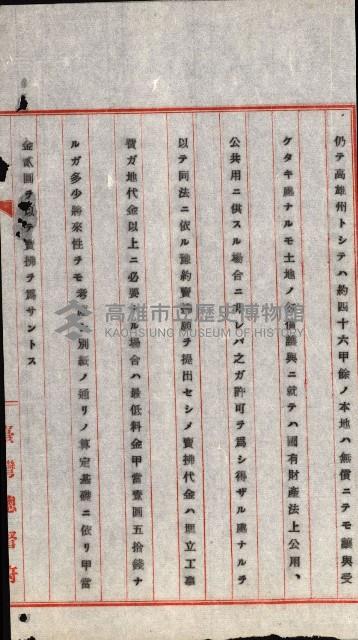 仍テ高雄州トシテハ約四十六甲餘ノ本地ハ無償ニテモ讓與受
ケタキ處ナルモ土地ノ無償讓與ニ就テハ國有財產法上公用、
公共用ニ供スル場合ニ非レバ之ガ許可ヲ爲シ得ザル處ナルヲ
以テ同法ニ依ル豫約賣 願ヲ提出セシメ賣拂代金ハ埋立工事
費ガ地代金以上ニ必要 ル場合ハ最低料金甲當壹圓五拾錢ナ
ルガ多少將來性ヲモ考 別紙ノ通リノ算定基礎ニ依リ甲當
金貳圓ヲ以テ賣拂ヲ爲サントス
臺灣總督府
高雄市立歷史博物館
KAOHSIUNG MUSEUM OF HISTORY